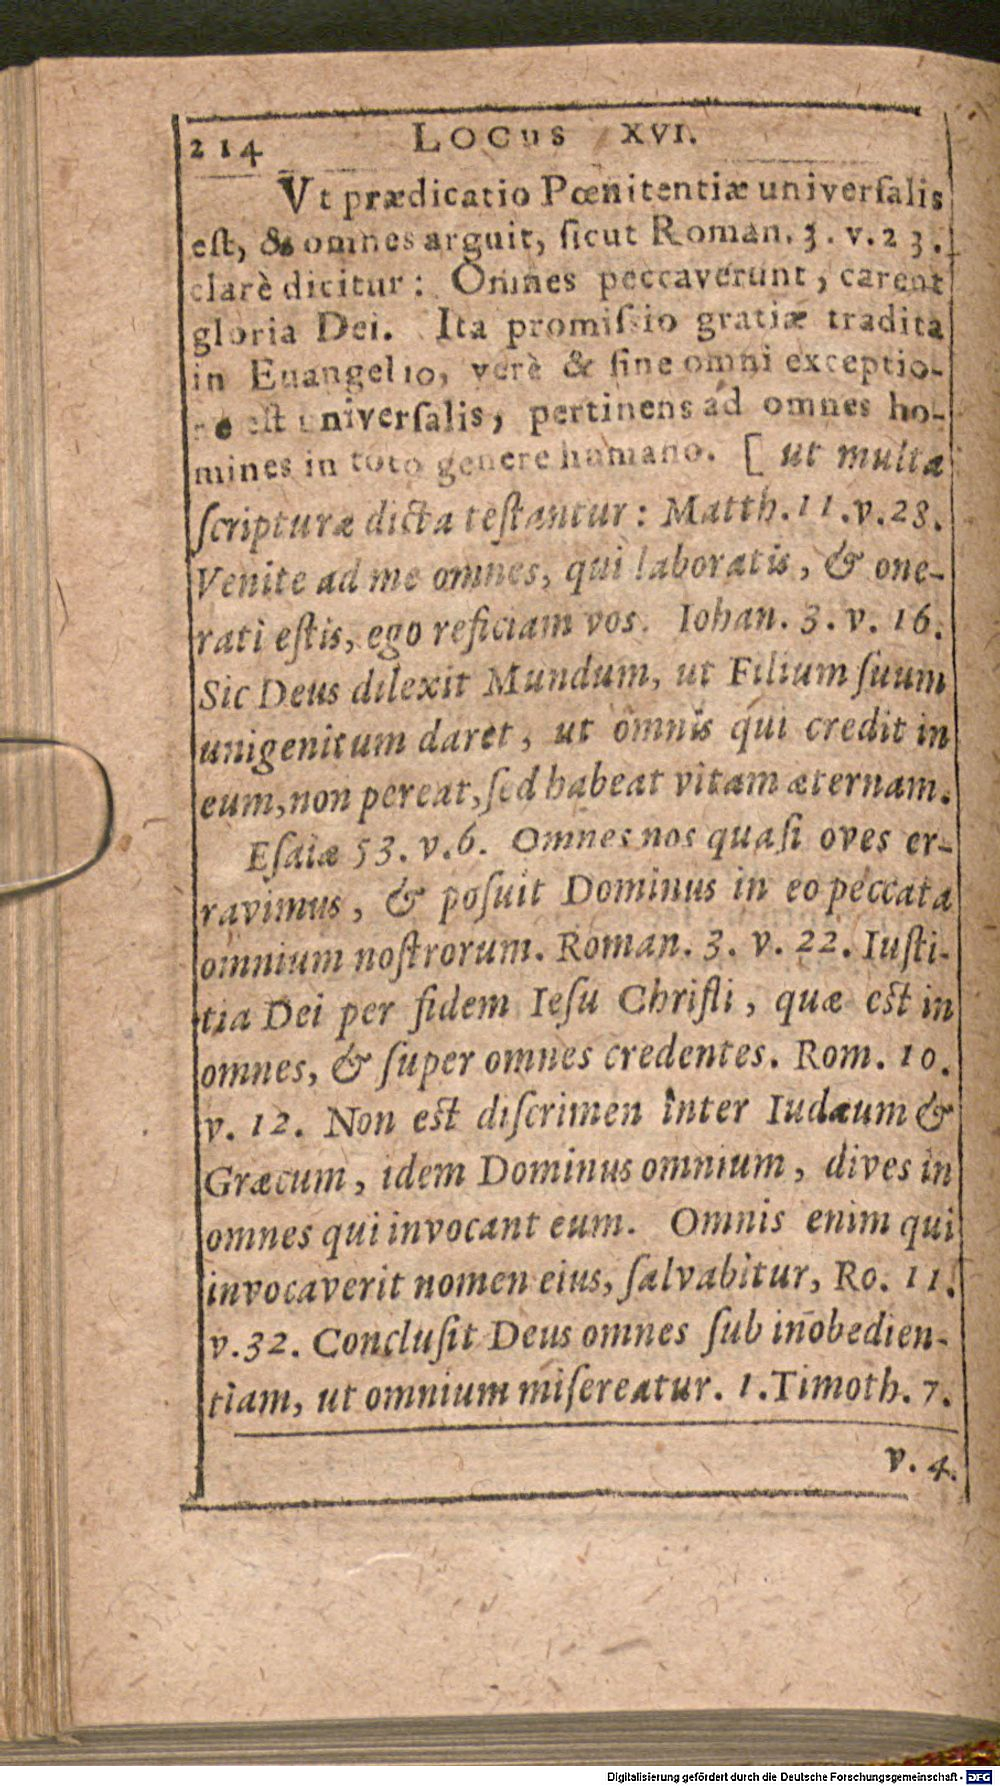 214 LOCUS XVI.
Vt prædicatio Pœnitentiæ universalis
est, & omnes arguit, sicut Roman. 3. v. 23.
clarè dicitur: Omnes peccaverunt, carent
gloria Dei. Ita promissio gratiæ tradita
in Euangelio, verè & sine omni exceptio-
ne est universalis, pertinens ad omnes ho-
mines in toto genere humano. [ ut multa
scripturæ dicta testantur: Matth. 11. v. 28.
Venite ad me omnes, qui laboratis, & one-
rati estis, ego reficiam vos. Iohan. 3. v. 16.
Sic Deus dilexit Mundum, ut Filium suum
unigenitum daret, ut omnis qui credit in
eum, non pereat, sed habeat vitam æternam.
Esaiæ 53. v. 6. Omnes nos quasi oves er-
ravimus, & posuit Dominus in eo peccata
omnium nostrorum. Roman. 3. v. 22. Iusti-
tia Dei per fidem Iesu Christi, quæ est in
omnes, & super omnes credentes. Rom. 10.
v. 12. Non est discrimen inter Iudæum &
Græcum, idem Dominus omnium, dives in
omnes qui invocant eum. Omnis enim qui
invocaverit nomen eius, salvabitur, Ro. 11.
v. 32. Conclusit Deus omnes sub inobedien-
tiam, ut omnium misereatur. 1. Timoth. 7.
v. 4.
Digitalisierung gefördert durch die Deutsche Forschungsgemeinschaft - DFG